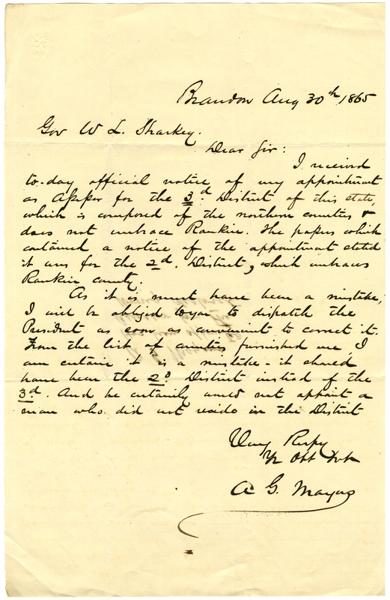 Brandon Aug 30th 1865
Gov W. L. Sharkey.
Dear Sir:
I received
to-day official notice of my appointment
as for the 3d District of this state,
which is composed of the northern counties &
does not embrace Rankin. The papers which
contained a notice of the appointment stated
it was for the 2d. District, which embraces
Rankin county.
As it is must have been a mistake,
I will be obliged to you to dispatch the
President as soon as convenient to correct it.
From the list of counties furnished me I
am certain it is a mistake - it should
have been the 2d District instead of the
3d. And he certainly would not appoint a
man who did not reside in the District
Very Respy
Yr Obt Svt
A G. Mayers